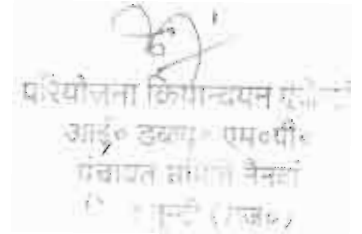 परियोजना क्रियान्वयन
आई० डब्ल्यू० एम०पी०
पंचायत समिति नैनवां
बून्दी (राज०)